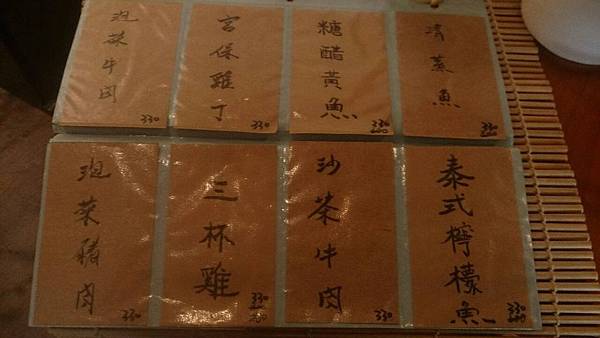 泡菜牛肉
330
宮保雞丁
330
糖醋黃魚
330
清蒸魚
330
泡菜豬肉
330
三杯雞
330
沙茶牛肉
330
泰式檸檬魚
330